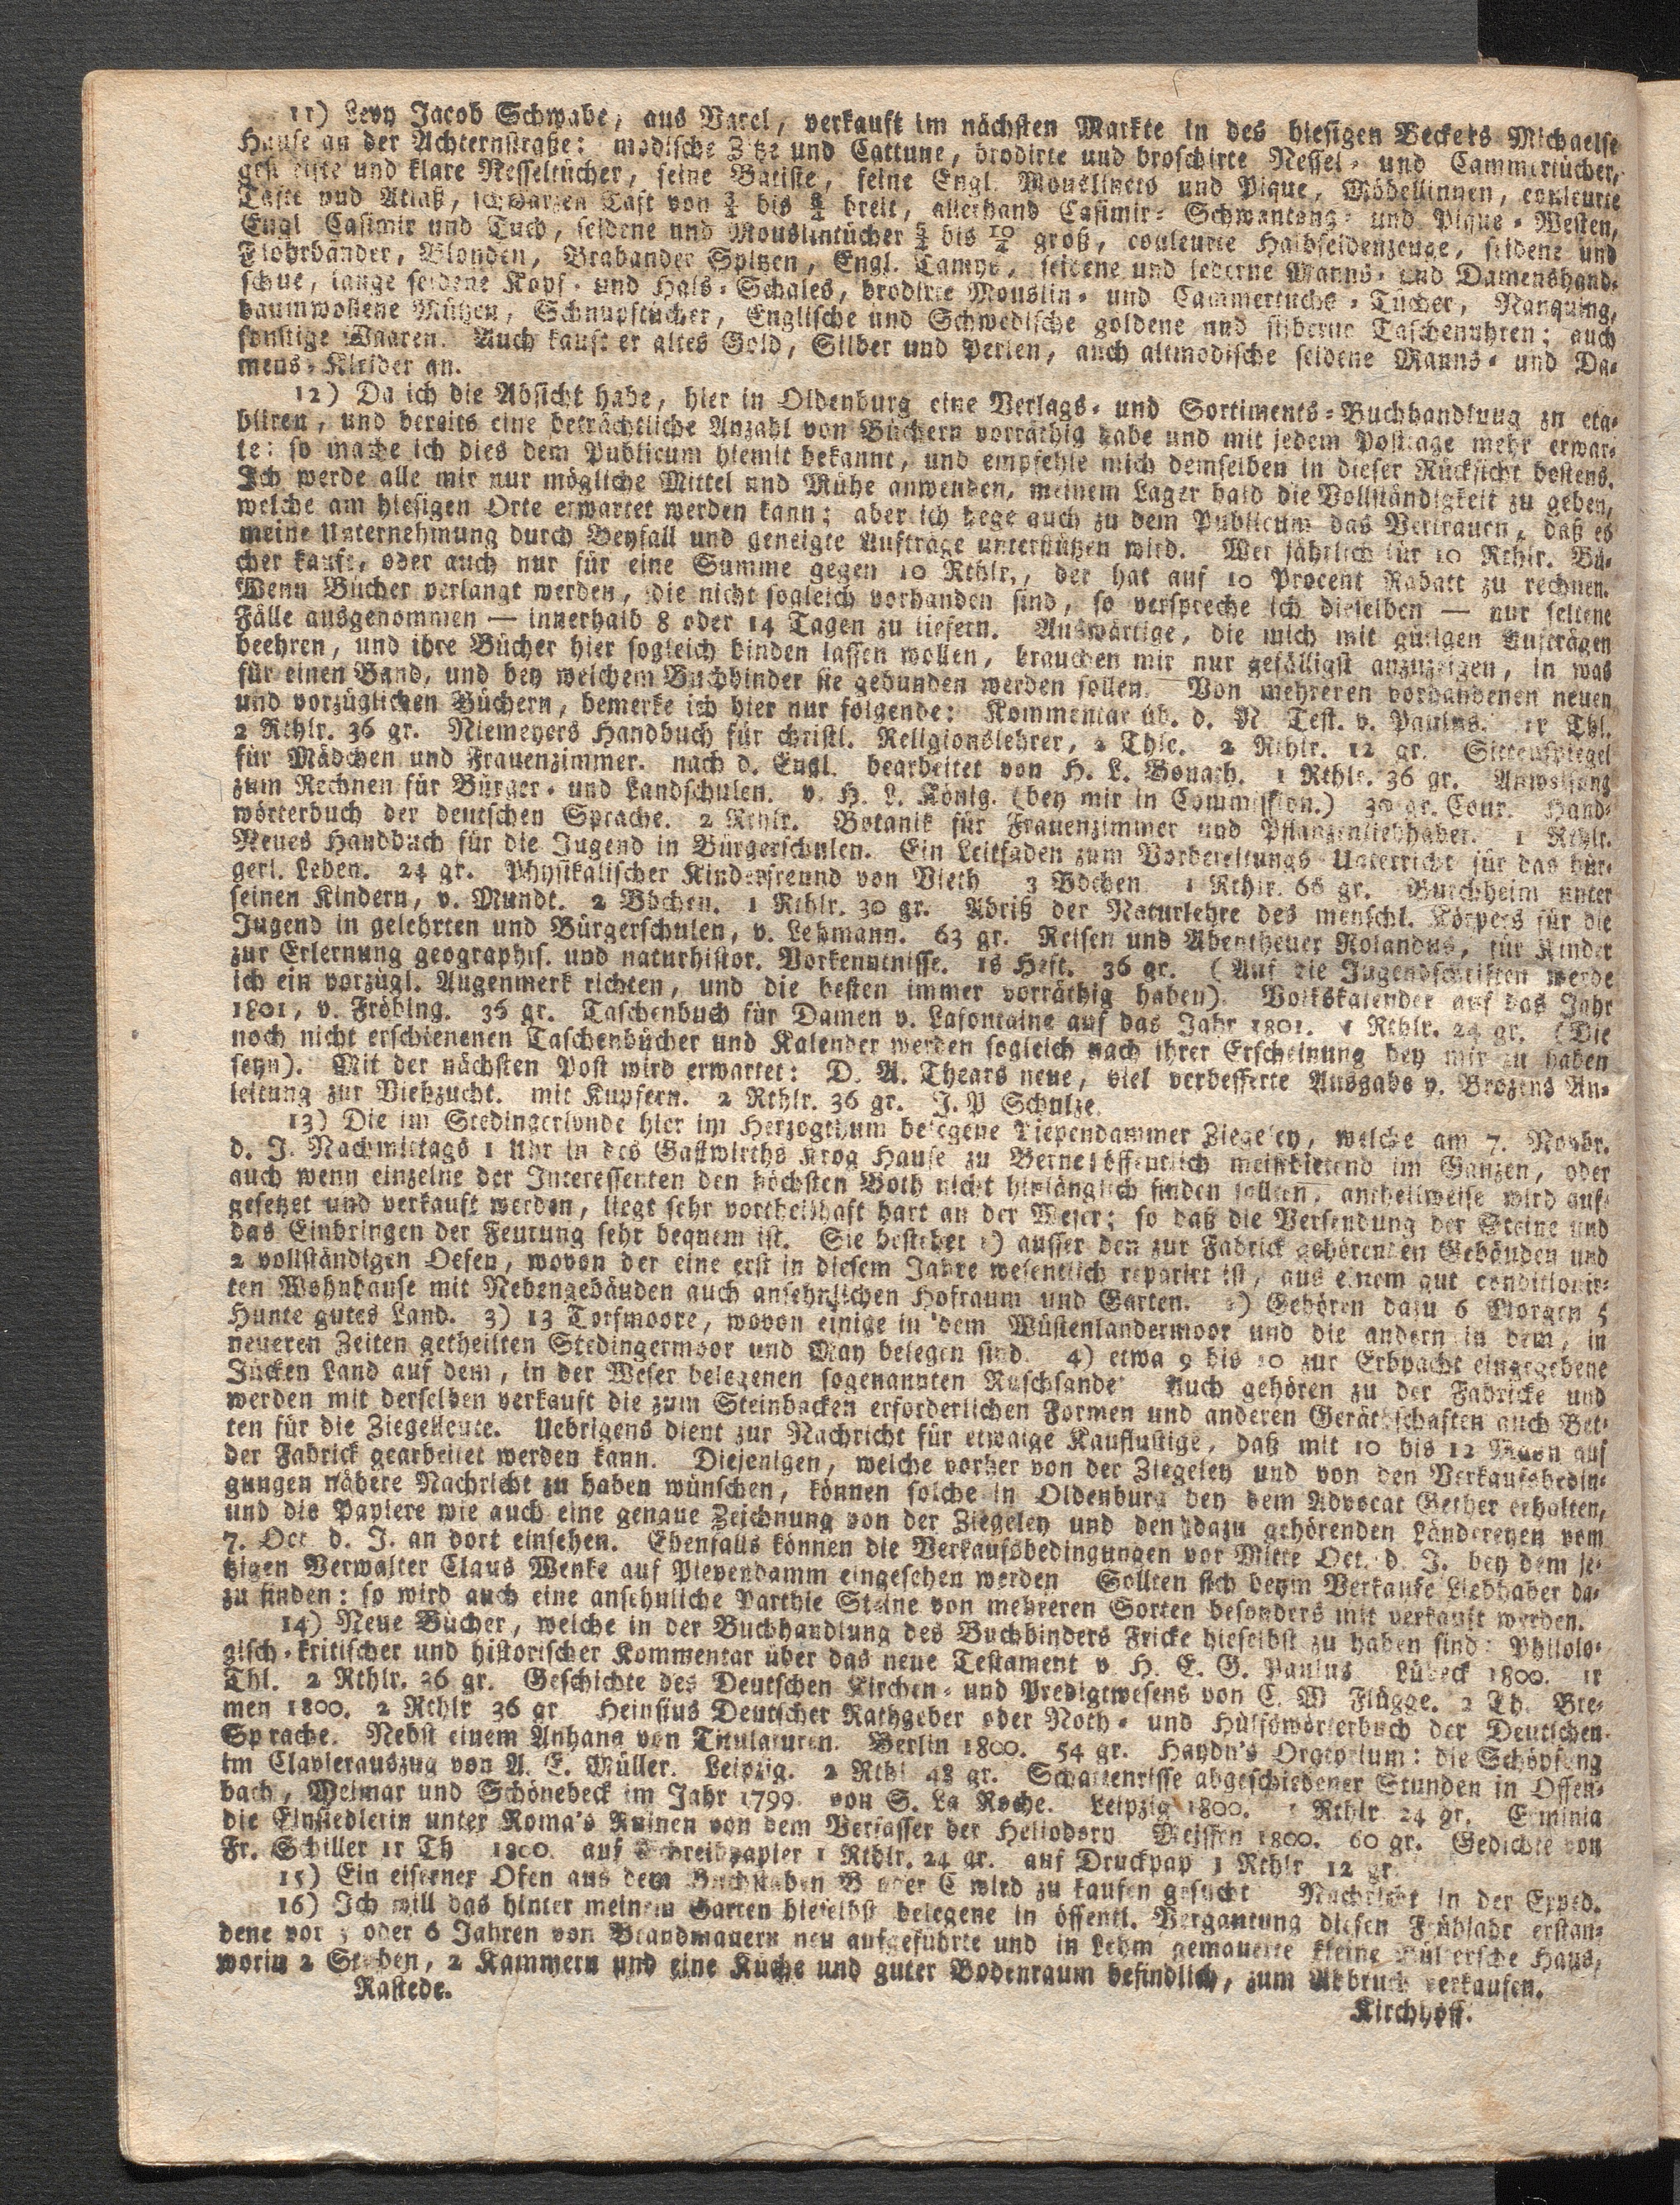 11) Levy Jacob Schwabe, aus Varel, verkauft im nächsten Markte in des hiesigen Beckers Michaelse
Hause an der Achternstraße: modische Zitze und Cattune, brodirte und broschirte Nessel- und Cammertücher,
gestreifte und klare Nesseltücher, feine Batiste, feine Engl. Mouslinets und Pique, Möbellinnen, couleurte
Tafte und Atlaß, schwarzen Taft von 3/4 bis 6/4 breit, allerhand Casimir- Schwantong- und Pique-Westen,
Engl Casimir und Tuch, seidene und Mouslintücher 5/4 bis 10/4 groß, couleurte Halbseidenzeuge, seidene und
Flohrbänder, Blonden, Brabander Spitzen, Engl. Camys, seidene und lederne Manns- und Damenshand-
schue, lange seidene Kopf- und Hals-Schales, brodirte Mouslin- und Cammertuchs-Tücher, Nanquing,
baumwollene Mützen, Schnupftücher, Englische und Schwedische goldene und silberne Taschenuhren; auch
sonstige Waaren. Auch kauft er altes Gold, Silber und Perlen, auch altmodische seidene Manns- und Da-
mens-Kleider an.
12) Da ich die Absicht habe, hier in Oldenburg eine Verlags- und Sortiments-Buchhandlung zu eta-
bliren, und bereits eine beträchtliche Anzahl von Büchern vorräthig habe und mit jedem Posttage mehr erwar-
te: so mache ich dies dem Publicum hiemit bekannt, und empfehle mich demselben in dieser Rücksicht bestens.
Ich werde alle mir nur mögliche Mittel und Mühe anwenden, meinem Lager bald die Vollständigkeit zu geben,
welche am hiesigen Orte erwartet werden kann; aber ich hege auch zu dem Publicum das Vertrauen, daß es
meine Unternehmung durch Beyfall und geneigte Aufträge unterstützen wird. Wer jährlich für 10 Rthlr. Bü-
cher kauft, oder auch nur für eine Summe gegen 10 Rthlr., der hat auf 10 Procent Rabatt zu rechnen.
Wenn Bücher verlangt werden, die nicht sogleich vorhanden sind, so verspreche ich dieselben — nur seltene
Fälle ausgenommen — innerhalb 8 oder 14 Tagen zu liefern. Auswärtige, die mich mit gütigen Aufträgen
beehren, und ihre Bücher hier sogleich binden lassen wollen, brauchen mir nur gefälligst anzuzeigen, in was
für einen Band, und bey welchem Buchbinder sie gebunden werden sollen. Von mehreren vorhandenen neuen
und vorzüglichen Büchern, bemerke ich hier nur folgende: Kommentar üb. d. N Test. v. Paulus. 1r Thl.
2 Rthlr. 36 gr. Niemeyers Handbuch für christl. Religionslehrer, 2 Thle. 2 Rthlr. 12 gr. Sittenspiegel
für Mädchen und Frauenzimmer. nach d. Engl. bearbeitet von H. L. Bonath. 1 Rthlr. 36 gr. Anweisung
zum Rechnen für Bürger- und Landschulen. v. H. L. König. (bey mir in Commission.) 30 gr. Cour. Hand-
wörterbuch der deutschen Sprache. 2 Rthlr. Botanik für Frauenzimmer und Pflanzenliebhaber. 1 Rthlr.
Neues Handbuch für die Jugend in Bürgerschulen. Ein Leitfaden zum Vorbereitungs Unterricht für das bür-
gerl. Leben. 24 gr. Physikalischer Kinderfreund von Vieth 3 Bdchen. 1 Rthlr. 66 gr. Burckheim unter
seinen Kindern, v. Mundt. 2 Bdchen. 1 Rthlr. 30 gr. Abriß der Naturlehre des menschl. Körpers für die
Jugend in gelehrten und Bürgerschulen, v. Lehmann. 63 gr. Reisen und Abentheuer Rolandus, für Kinder
zur Erlernung geographis. und naturhistor. Vorkenntnisse. 1s Heft. 36 gr. (Auf die Jugendschriften werde
ich ein vorzügl. Augenmerk richten, und die besten immer vorräthig haben). Volkskalender auf das Jahr
1801, v. Fröbing. 36 gr. Taschenbuch für Damen v. Lafontaine auf das Jahr 1801. 1 Rthlr. 24 gr. (Die
noch nicht erschienenen Taschenbücher und Kalender werden sogleich nach ihrer Erscheinung bey mir zu haben
seyn). Mit der nächsten Post wird erwartet: D. A. Thears neue, viel verbesserte Ausgabe v. Brozens An-
leitung zur Viehzucht. mit Kupfern. 2 Rthlr. 36 gr. J. P Schulze.
13) Die im Stedingerlande hier im Herzogthum belegene Piependammer Ziegeley, welche am 7. Novbr.
d. J. Nachmittags 1 Uhr in des Gastwirths Krog Hause zu Berne öffentlich meistbietend im Ganzen, oder
auch wenn einzelne der Interessenten den höchsten Both nicht hinlänglich finden sollten, antheilweise wird auf-
gesetzet und verkauft werden, liegt sehr vortheilhaft hart an der Weser; so daß die Versendung der Steine und
das Einbringen der Feurung sehr bequem ist. Sie bestehet 1) ausser den zur Fabrick gehörenden Gebäuden und
2 vollständigen Oefen, wovon der eine erst in diesem Jahre wesentlich repariet ist, aus einem gut conditionir-
ten Wohnhause mit Nebengebäuden auch ansehnlichen Hofraum und Garten. 2) Gehören dazu 6 Morgen 5
Hunte gutes Land. 3) 13 Torfmoore, wovon einige in dem Wüstenlandermoor und die andern in dem, in
neueren Zeiten getheilten Stedingermoor und May belegen sind. 4) etwa 9 bis 10 zur Erbpacht eingegebene
Jücken Land auf dem, in der Weser belegenen sogenannten Ruschsande Auch gehören zu der Fabricke und
werden mit derselben verkauft die zum Steinbacken erforderlichen Formen und anderen Geräthschaften auch Bet-
ten für die Ziegelleute. Uebrigens dient zur Nachricht für etwaige Kauflustige, daß mit 10 bis 12 Mann auf
der Fabrick gearbeitet werden kann. Diejenigen, welche vorher von der Ziegeley und von den Verkaufsbedin-
gungen nähere Nachricht zu haben wünschen, können solche in Oldenburg bey dem Advocat Gether erhalten,
und die Papiere wie auch eine genaue Zeichnung von der Ziegeley und den dazu gehörenden Ländereyen vom
7. Oct d. J. an dort einsehen. Ebenfalls können die Verkaufsbedingungen vor Mitte Oct. d. J. bey dem je-
tzigen Verwalter Claus Wenke auf Piependamm eingesehen werden Sollten sich beym Verkaufe Liebhaber da-
zu finden: so wird auch eine ansehnliche Parthie Steine von mehreren Sorten besonders mit verkauft werden.
14) Neue Bücher, welche in der Buchhandlung des Buchbinders Fricke hieselbst zu haben sind: Philolo-
gisch-kritischer und historischer Kommentar über das neue Testament v H. E. G. Paulus Lübeck 1800. 1r
Thl. 2 Rthlr. 36 gr. Geschichte des Deutschen Kirchen- und Predigtwesens von C. W Flügge. 2 Th. Bre-
men 1800. 2 Rthlr 36 gr Heinsius Deutscher Rathgeber oder Noth- und Hülfswörterbuch der Deutschen
Sprache. Nebst einem Anhang von Titulaturen. Berlin 1800. 54 gr. Haydn's Oratorium: die Schöpfung
im Clavierauszug von A. E. Müller. Leipzig. 2 Rthl 48 gr. Schattenrisse abgeschiedener Stunden in Offen-
bach, Weimar und Schönebeck im Jahr 1799. von S. La Roche. Leipzig 1800. 1 Rthlr 24 gr. Erminia
die Einsiedlerin unter Roma's Ruinen von dem Verfasser der Heliodora Meissen 1800. 60 gr. Gedichte von
Fr. Schiller 1r Th 1800. auf Schreibpapier 1 Rthlr. 24 gr. auf Druckpap 1 Rthlr 12 gr.
15) Ein eiserner Ofen aus dem Buchstaben B oder C wird zu kaufen gesucht Nachricht in der Exped.
16) Ich will das hinter meinem Garten hieselbst belegene in öffentl. Vergantung diesen Frühjahr erstan-
dene vor 5 oder 6 Jahren von Brandmauern neu aufgeführte und in Lehm gemauerte kleine Haus,
worin 2 Stuben, 2 Kammern und eine Küche und guter Bodenraum befindlich, zum Abbruch verkaufen.
Rastede.
Kirchhoff.